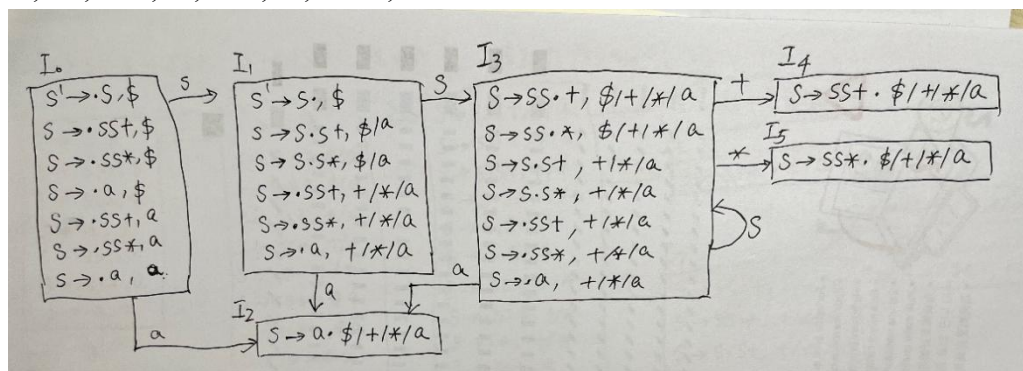 I₀
S' → ·S, $
S → ·SS+, $
S → ·SS*, $
S → ·a, $
S → ·SS+, a
S → ·SS*, a
S → ·a, a
S
I₁
S' → S·, $
S → S·S+, $/a
S → S·S*, $/a
S → ·SS+, +/*/a
S → ·SS*, +/*/a
S → ·a, +/*/a
S
I₃
S → SS·+, $/+/*/a
S → SS·*, $/+/*/a
S → S·S+, +/*/a
S → S·S*, +/*/a
S → ·SS+, +/*/a
S → ·SS*, +/*/a
S → ·a, +/*/a
S
+
I₄
S → SS+· $/+/*/a
*
I₅
S → SS*· $/+/*/a
a
a
a
I₂
S → a· $/+/*/a